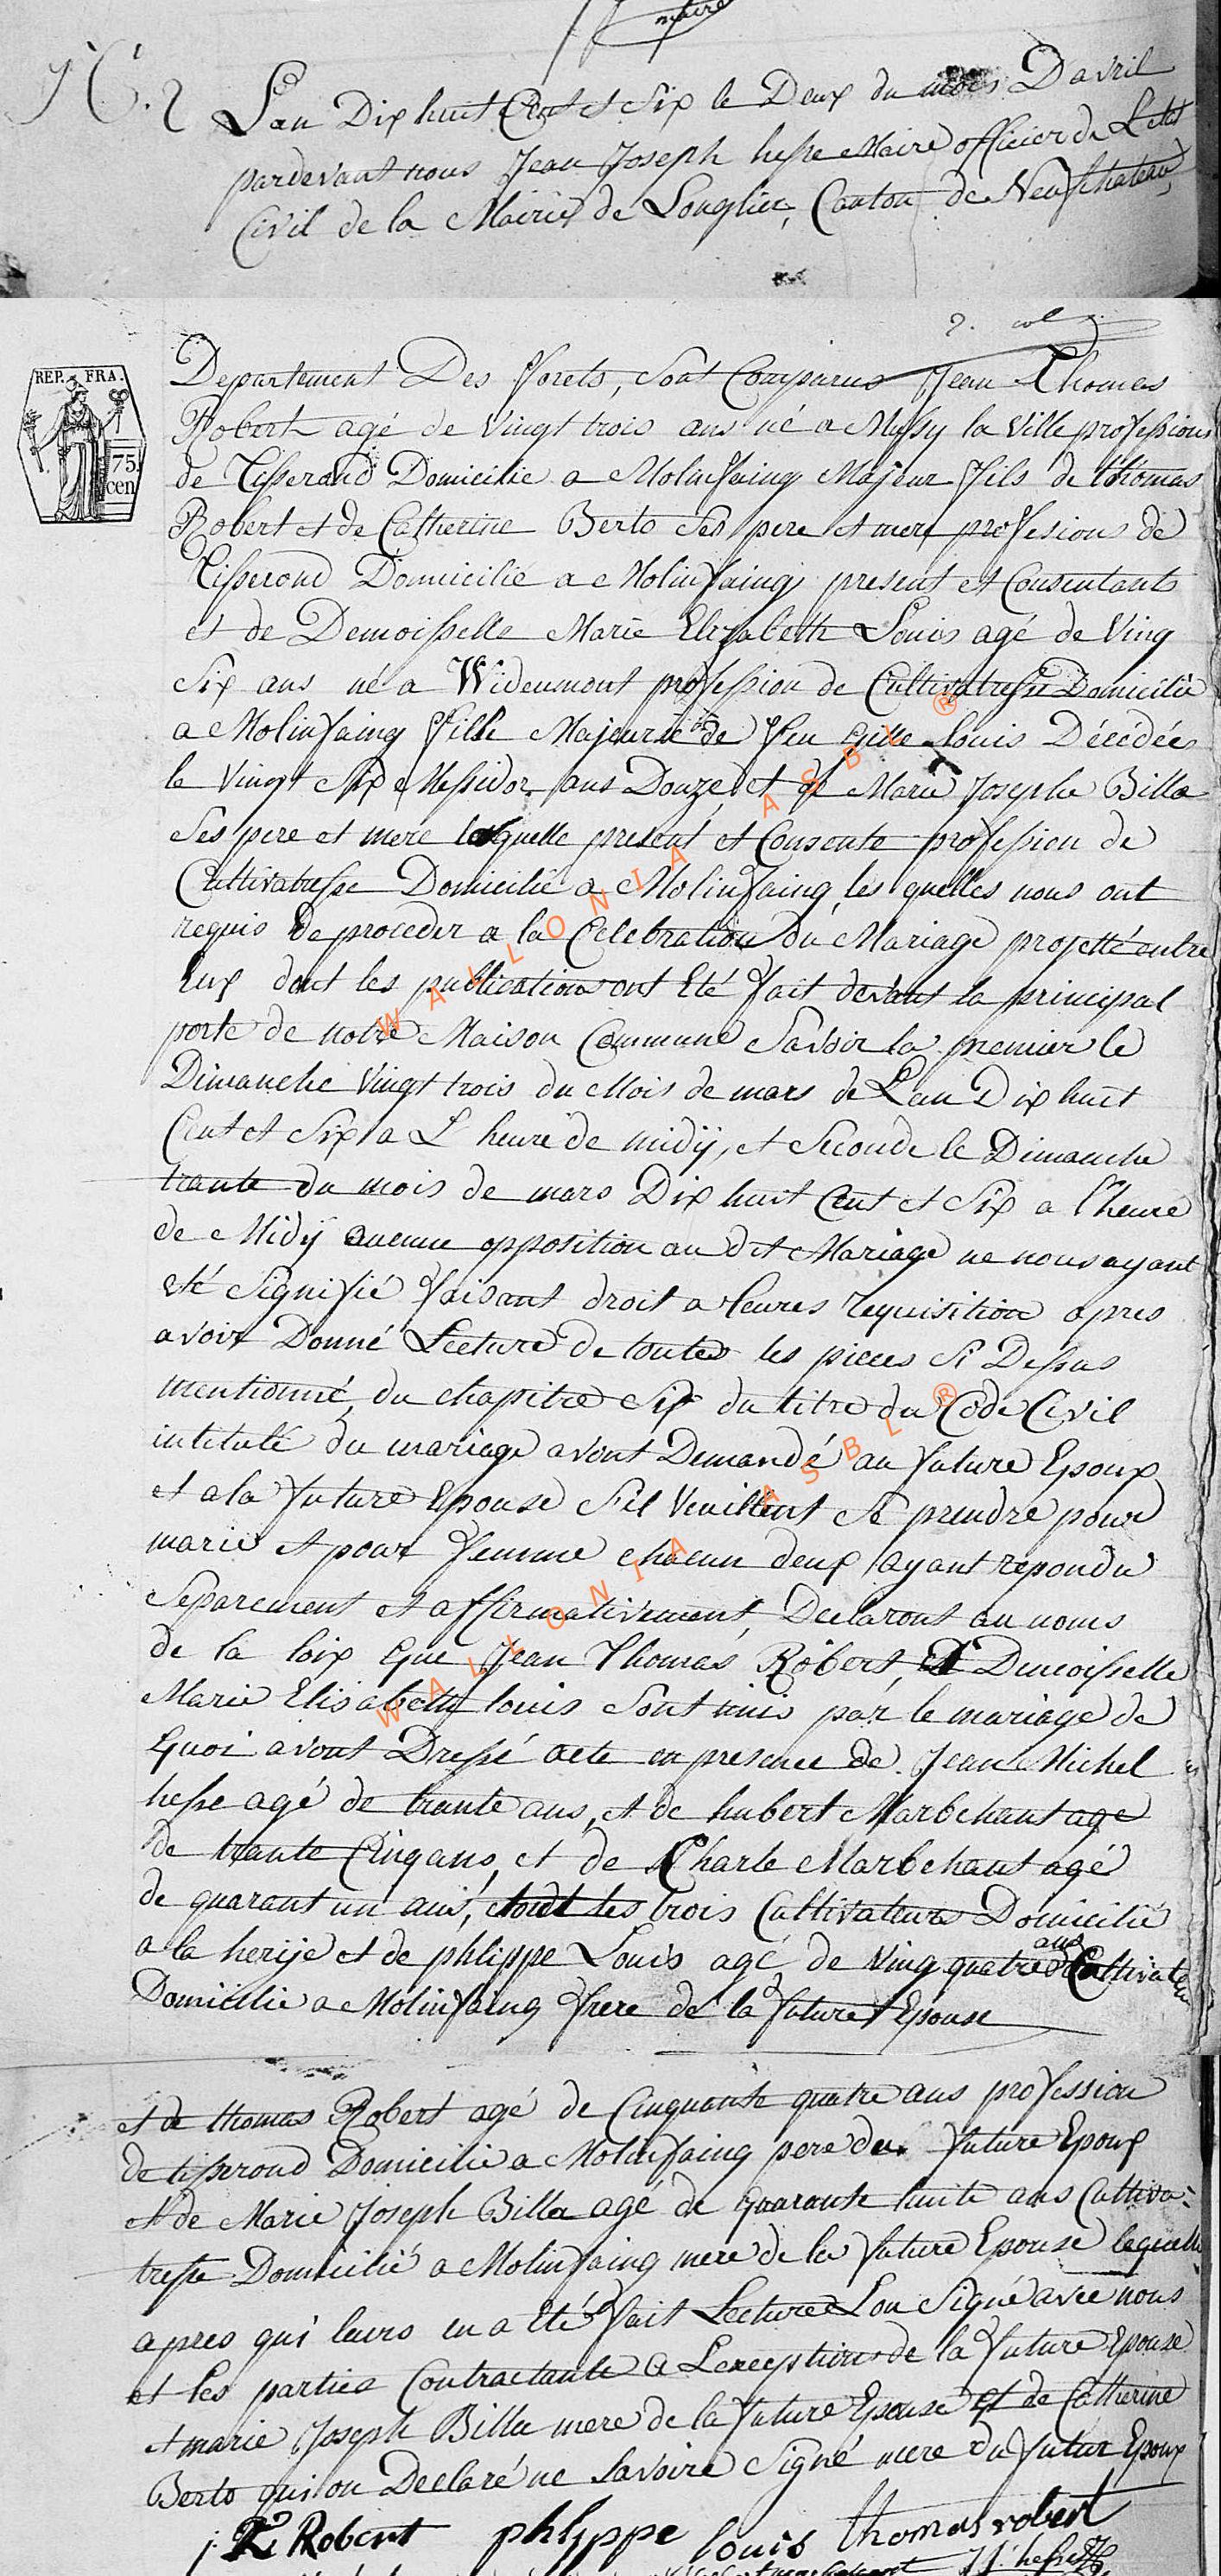 maire
N. 2 Lan Dix huit Cent et Six le Deux du mois D avril
pardevant nous Jean Joseph hesse Maire officier de Letat
Civil de la Mairie de Longlier, Canton de Neufchateau,
2.
Departement Des forets, Sont Comparus Jean Thomas
REP. FRA.
75. cen
Robert agé de vingt trois ans né a Messy la Ville profession
de Tisserand Domicilie a Molinfaing Majeur fils de thomas
Robert et de Catherine Berto Ses pere et mere profesions de
Tisserond Domicilié a Molinfaing present et Consentants
et de Demoisselle Marie Elizabeth Louis agé de Ving
Six ans né a Wideumont profession de Cultivatresse Domicilié
a Molinfaing fille Majeure de feu Gille Louis Décédée
le vingt Six Messidor ans Douze et de Marie Josephe Billa
Ses pere et mere laquelle present et Consente profession de
Cultivatresse Domicilié a Molinfaing, les quelles nous ont
requis De proceder a la Celebration du Mariage projetté entre
Eux dont les publications ont Eté fait devant la principal
porte de notre Maison Commune Savoir la premier le
Dimanche vingt trois du Mois de mars de Lan Dix huit
Cent et Six a L heure de midÿ, et Seconde le Dimanche
trante du mois de mars Dix huit Cent et Six a l'heure
de Midÿ aucune opposition au dit Mariage ne nous ayant
eté Signifié faisant droit a leures requisition apres
avoir Donné Lecture de toutes les pieces Si Dessus
mentionné, du chapitre Six du titre du Code Civil
intitulé du mariage avont Demandé au future Epoux
et a la future Epouse S'il Veuillent Se prendre pour
marie et pour femme chacun deux ayant repondu
Separement et affirmativement, Declaront au noms
de la loix que Jean Thomas Robert, Et Demoisselle
Marie Elisabeth louis Sont unis par le mariage de
Quoi avont Dressé acte en presence de Jean Michel
hesse agé de trante ans, et de hubert Marbehant age
de trante Cinq ans, et de Charle Marbehant agé
de quarant un ans, tout les trois Cultivateurs Domicilié
a la herije et de phlippe Louis agé de ving quatre ans Cultivateur
Domicilie a Molinfaing frere de la future Epouse
et de thomas Robert agé de Cinquante quatre ans profession
de tisserond Domicilie a Molinfaing pere du future Epoux
et de Marie Joseph Billa agé de quarante huite ans Cultiva-
tresse Domicilié a Molinfaing mere de la future Epouse laquelle
apres qui leurs en a Eté fait Lecture Lon Signé avec nous
et les parties Contractante a Lexceptions de la future Epouse
et marie Joseph Billa mere de la future Epouse et de Catherine
Berto qui on Declaré ne Savoire Signé mere du futur Epoux
j. Robert phlyppe louis thomas robert
WALLONIA ASBL ®
WALLONIA ASBL ®